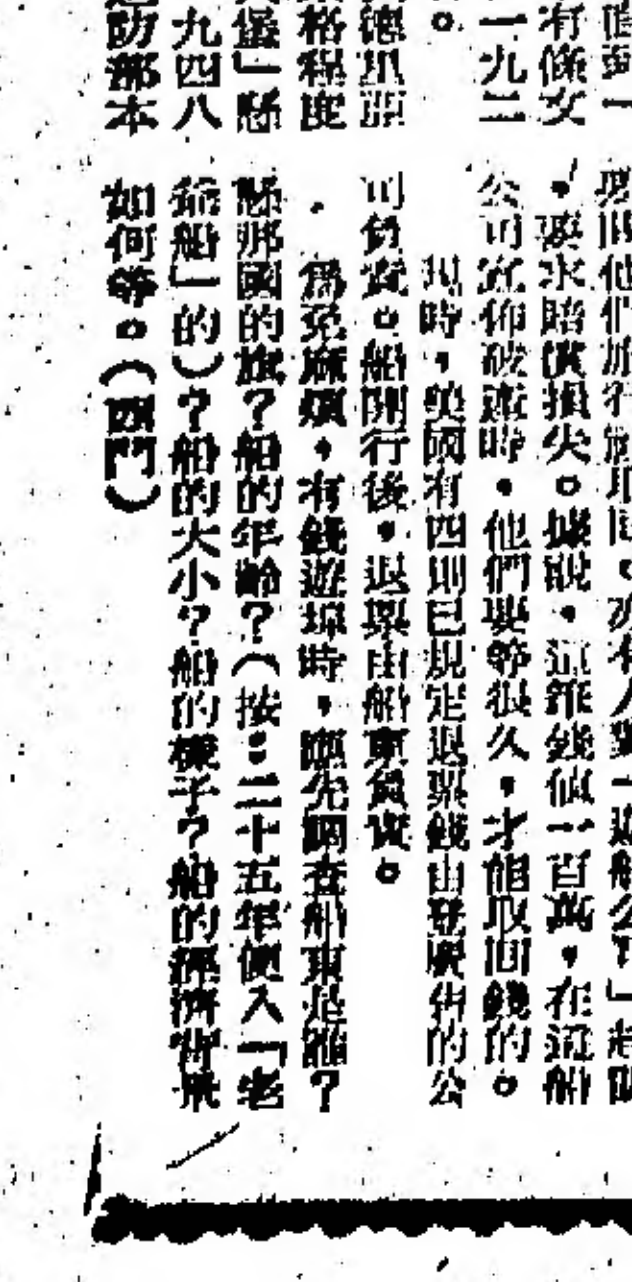 值到一
有條文
一九二
。
德里亞
格程度
堡」懸
九四八
防部本
他們旅行
,要求賠償損失。據說,這錐錢值一百萬,在這船
公司宣佈破產時,他們要等很久,才能取回錢的。
現時,美國有四則已規定退票錢由登廣告的公
司負責。船開行後,退票由船東負責。
為免麻煩,有錢遊埠時,應先調查船東是誰?
懸那國的旗?船的年齡?(按:二十五年便入「老
爺船」的)?船的大小?船的樣子?船的經濟背景
如何等。(西門)